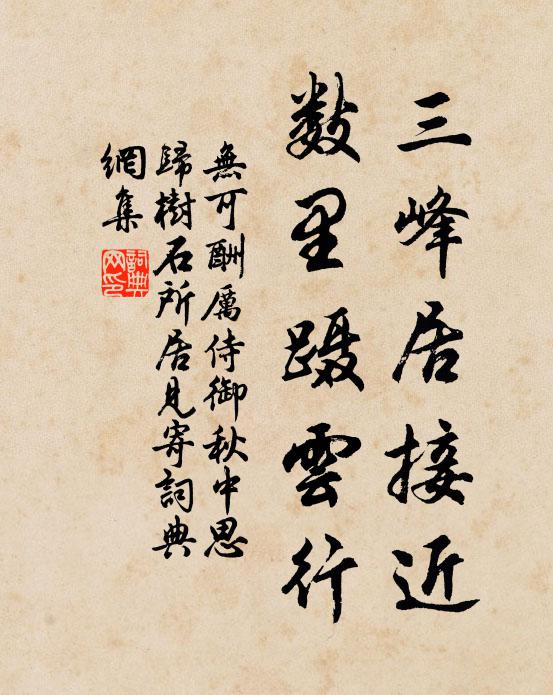 三峰居接近
數里蹑雲行
無可酬厲侍御秋中思
歸樹石所居見寄詞典
網集
詞典网印